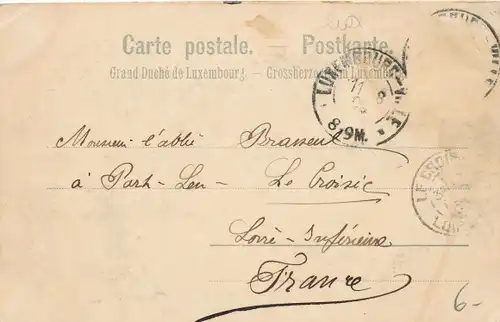 Carte postale. — Postkarte.
Grand Duché de Luxembourg. — Grossherzogtum Luxemburg
LUXEMBOURG-VILLE
11
8-9M.
Monsieur l'abbé Brasseur
à Port-Leu- Le Croisic
Loire-Inférieure
France
6-